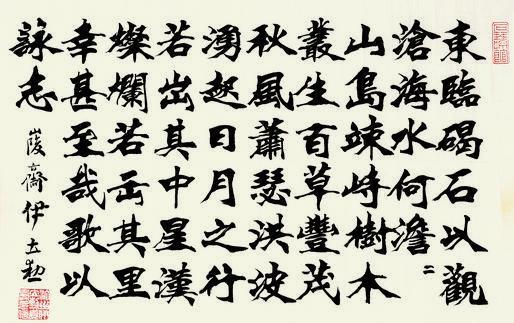 東臨碣石以觀
滄海水何澹〻
山島竦峙樹木
叢生百草豐茂
秋風蕭瑟洪波
湧起日月之行
若出其中星漢
燦爛若出其里
幸甚至哉歌以
詠志
峻齋伊立勳